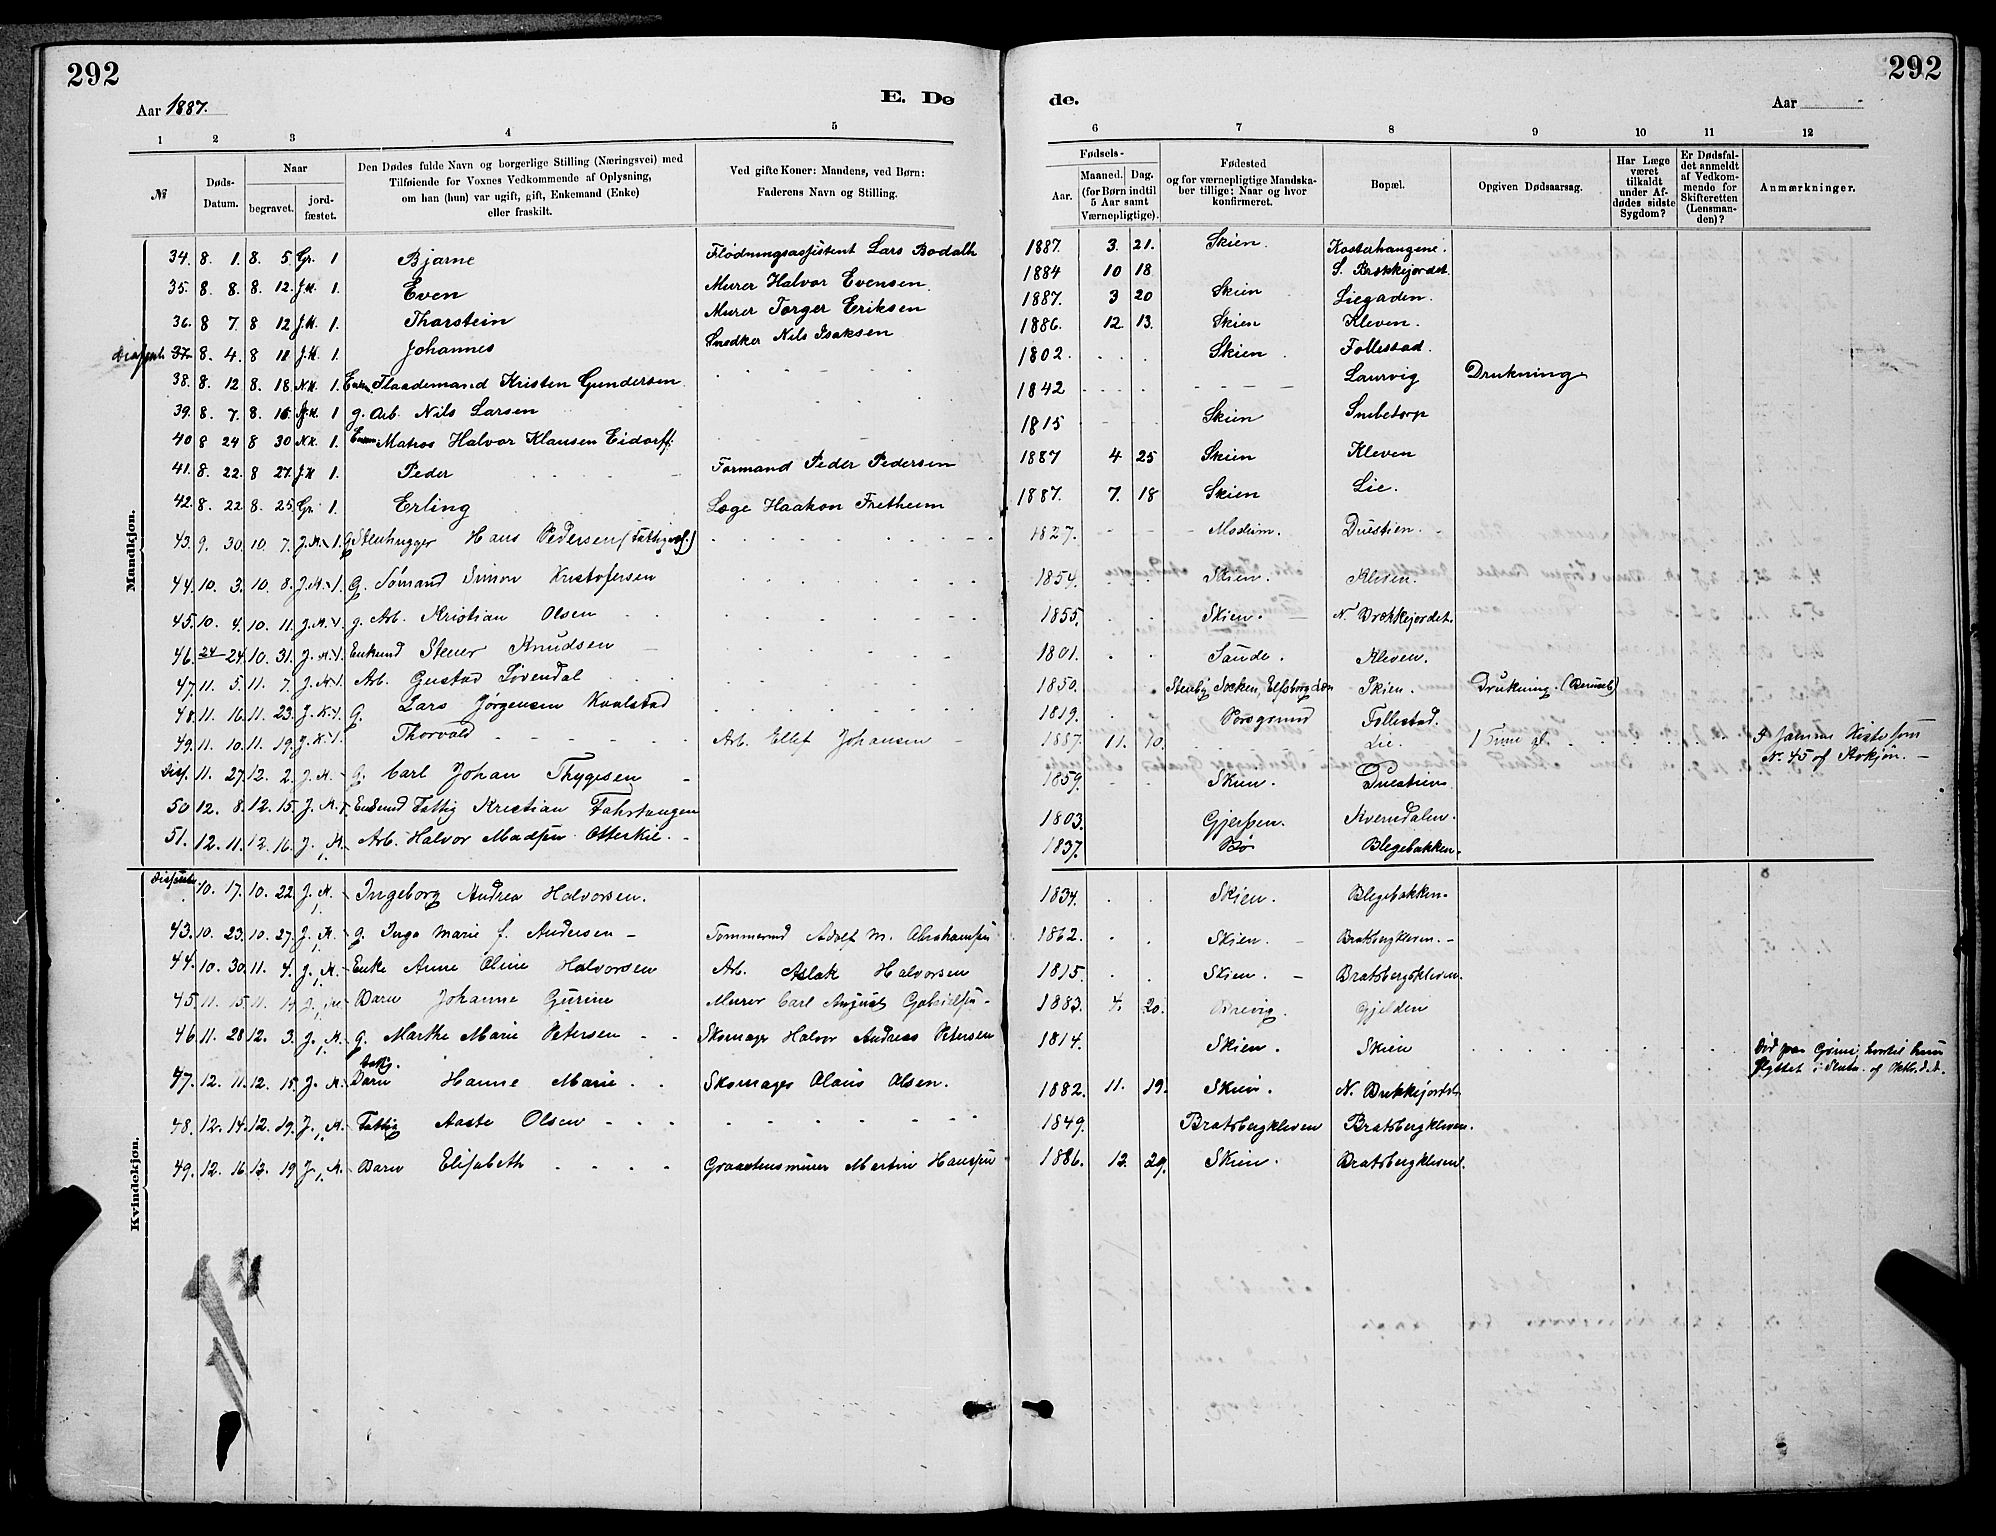 292
292
Aar 1887.
E. Dø
de.
Aar
1 2 3 4 5
6 7 8 9 10 11 12
№
Døds-Datum.
Naar
begravet.
jord-fæstet.
Den Dødes fulde Navn og borgerlige Stilling (Næringsvei) med
Tilføiende for Voxnes Vedkommende af Oplysning,
om han (hun) var ugift, gift, Enkemand (Enke)
eller fraskilt.
Ved gifte Koner: Mandens, ved Børn:
Faderens Navn og Stilling.
Fødsels-
Aar.
Maaned. Dag.
(for Børn indtil
5 Aar samt
Værnepligtige).
Fødested
og for værnepligtige Mandska-
ber tillige: Naar og hvor
konfirmeret.
Bopæl.
Opgiven Dødsaarsag.
Har Læge
været
tilkaldt
under Af-
dødes sidste
Sygdom?
Er Dødsfal-
det anmeldt
af Vedkom-
mende for
Skifteretten
(Lensman-
den)?
Anmærkninger.
Mandkjøn.
34. 8. 1. 8. 5. Gr. 1 Bjarne Flødningsassistent Lars Bodalh 1887. 3. 21. Skien. Kosterhaugene.
35. 8. 8. 8. 12. J.K. 1. Even Murer Halvor Evensen. 1884 10 18. S. Brekkejordet.
36. 8 7. 8 12 J.K. 1. Thorstein Murer Torger Eriksen 1887. 3 20 Skien Liegaden.
37. 8. 4. 8 11 J.K. 1. Johannes Snedker Nils Isaksen 1886. 12. 13. Skien Kleven.
38. 8. 12 8. 18. N.K. 1. Enkem. Flaademand Kristen Gundersen 1802. Skien. Follestad.
39. 8. 7. 8. 16. J.K. 1 g. Arb. Nils Larsen 1842 Laurvig Drukning
40 8 24 8 30 N.K. 1. Enkem Matros Halvor Klausen Eidorff. 1815 Skien Snibetorp
41. 8. 22. 8 27. J.K 1. Peder Formand Peder Pedersen 1887 4 25 Skien Kleven
42. 8. 22 8. 25. Gr. 1. Erling Læge Haakon Fretheim 1887. 7. 18 Skien Lie.
43. 9. 30. 10. 7. J.K. 1. g Stenhugger Hans Pedersen (Fattig) 1827. Modum. Duestien.
44. 10. 3. 10. 8. J.K. 1. G. Sømand Simon Kristofersen 1854. Skien. Kleven.
45. 10. 4. 10. 11. J.K. 1. g. Arb. Kristian Olsen 1855. Skien. N. Brekkejordet.
46. 24 24. 10. 31. J.K. 1. Enkemd Stener Knudsen 1801. Saude. Kleven.
47. 11. 5. 11. 7. J.K. 1. Arb. Gustav Løvendal 1850. Stenby Socken, Elfsborg Län Skien. Drukning. (Beruset)
48. 11. 16. 11. 23. J.K. 1. G. Lars Jørgensen Kvalstad 1819. Porsgrund Follestad.
49. 11. 10. 11. 19. J.K. 1. Thorvald Arb. Ellef Johansen 1887. 11. 10. Lie. 1 Time gl. N. 45 of
Disp. 11. 27. 12. 2. J.K. G. Carl Johan Thygesen 1859. Skien. Duestien.
50 12. 8. 12. 15. J.K. 1. Enkemd Fattig Kristian Fahrstangen 1803. Gjerpen. Kverndalen.
51. 12. 11. 12. 16. J.K. 1. Arb. Halvor Madsen Otterkil. 1837. Bø Blegebakken.
Kvindekjøn.
10. 17. 10. 22. J.K. 1. Ingeborg Andrea Halvorsen. 1834. Skien. Blegebakken.
43. 10. 23. 10. 27. J.K. 1. g. Inga Marie f. Andersen Tømmermd Adolf M. Abrahamsen 1862. Skien. Bratsbergkleven.
44. 10. 30. 11. 4. J.K. 1. Enke Anne Oline Halvorsen Arb. Aslak Halvorsen 1815. Skien. Bratsbergkleven.
45. 11. 15. 11. 19. J.K. 1. Barn Johanne Gurine Murer Carl August Gabrielsen 1883. 4. 20. Brevig. Gjelden
46. 11. 28. 12. 3. J.K. 1. g. Marthe Marie Petersen Skomager Halvor Andreas Petersen 1814. Skien. Skien Død paa hvortil hun flyttet
47. 12. 11. 12. 15. J.K. 1. Barn Hanne Marie Skomager Olaus Olsen. 1882. 11. 19. Skien. N. Brekkejordet
48. 12. 14. 12. 19. J.K. 1. Fattig Aaste Olsen 1849. Bratsbergkleven Bratsbergkleven.
49. 12. 16 12. 19 J.K. 1. Barn Elisabeth Graastensmurer Martin Hansen 1886. 12. 29. Skien. Bratsbergkleven.